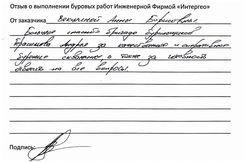 Отзыв о выполнении буровых работ Инженерной Фирмой «Интергео»
от заказчика Анны Борисовны
Большое спасибо бригаде бурильщиков
Андрея за качественное и оперативное
бурение скважины, а также за
ответы на все вопросы.
Подпись: